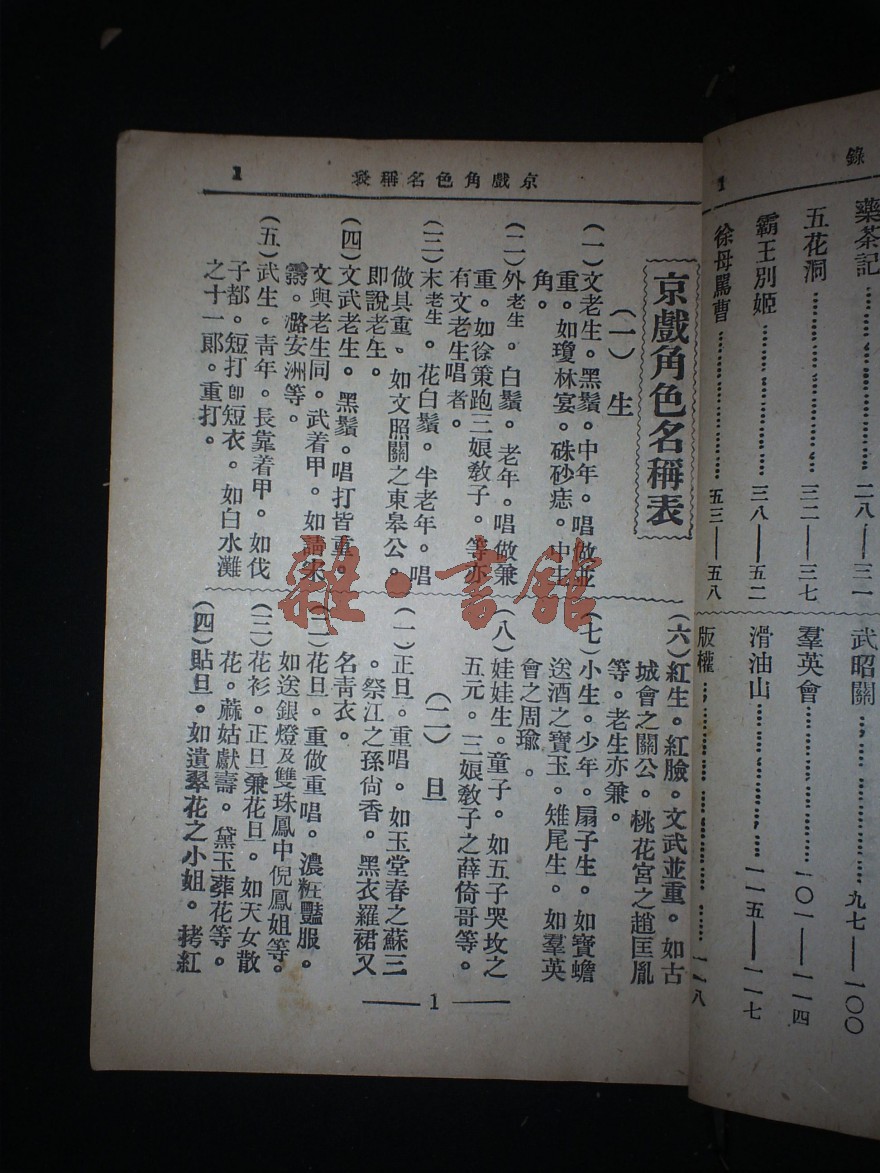 錄 1
藥茶記……二八——三一
五花洞……三二——三七
霸王別姬……三八——五二
徐母罵曹……五三——五八
武昭關……九七——一〇〇
羣英會……一〇一——一一四
滑油山……一一五——一一七
版權……一一八
京戲角色名稱表 1
京戲角色名稱表
(一)生
(一)文老生。黑鬚。中年。唱做並
重。如瓊林宴。硃砂痣。中生
角。
(二)外老生。白鬚。老年。唱做兼
重。如徐策跑三娘敎子。等亦
有文老生唱者。
(三)末老生。花白鬚。半老年。唱
做具重。如文照關之東皋公。
即說老生。
(四)文武老生。黑鬚。唱打皆重。
文與老生同。武着甲。如
潞安洲等。
(五)武生。青年。長靠着甲。如伐
子都。短打卽短衣。如白水灘
之十一郎。重打。
(六)紅生。紅臉。文武並重。如古
城會之關公。桃花宮之趙匡胤
等。老生亦兼。
(七)小生。少年。扇子生。如寶蟾
送酒之寶玉。雉尾生。如羣英
會之周瑜。
(八)娃娃生。童子。如五子哭坟之
五元。三娘敎子之薛倚哥等。
(二)旦
(一)正旦。重唱。如玉堂春之蘇三
。祭江之孫尙香。黑衣羅裙又
名靑衣。
(二)花旦。重做重唱。濃粧豔服。
如送銀燈及雙珠鳳中倪鳳姐等。
(三)花衫。正旦兼花旦。如天女散
花。蔴姑獻壽。黛玉葬花等。
(四)貼旦。如遺翠花之小姐。拷紅
—— 1 ——
雜·書館